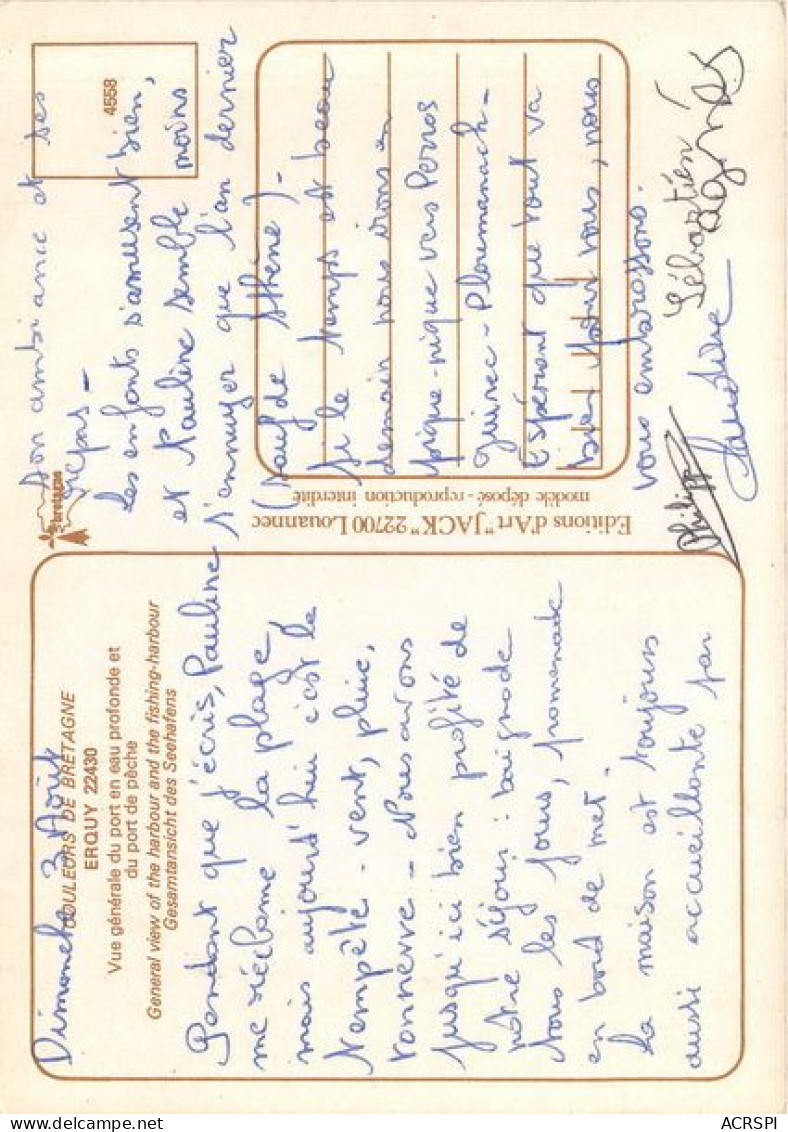 Dimanche 3 Août
COULEURS DE BRETAGNE
ERQUY 22430
Vue générale du port en eau profonde et
du port de pêche
General view of the harbour and the fishing-harbour
Gesamtansicht des Seehafens
Pendant que j'écris, Pauline
me réclame la plage,
mais aujourd'hui c'est la
tempête - vent, pluie,
tonnerre - Nous avons
jusqu'ici bien profité de
notre séjour : baignade
tous les jours, promenade
en bord de mer.
La maison est toujours
aussi accueillante par
son ambiance et ses
repas -
Les enfants s'amusent bien,
et Pauline semble moins
s'ennuyer que l'an dernier
(sauf de Athéna) -
Si le temps est beau
demain nous irons en
pique-nique vers Perros
Guirec - Ploumanach -
Espérant que tout va
bien pour vous, nous
vous embrassons.
Philippe
Claudine
Sébastien
Agnès
bretagne
4558
Editions d'Art "JACK" 22700 Louannec
modèle déposé - reproduction interdite
ACRSPI